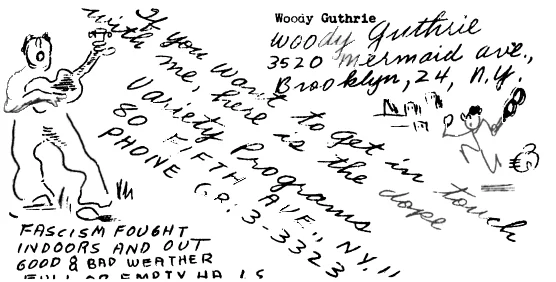 Woody Guthrie
Woody Guthrie
3520 mermaid ave.,
Brooklyn, 24, N.Y.
If you want to get in touch
with me, here is the dope
Variety Programs
80 FIFTH AVE., NY. 11
PHONE GR. 3-3323
FASCISM FOUGHT
INDOORS AND OUT
GOOD & BAD WEATHER
FULL OR EMPTY HALLS